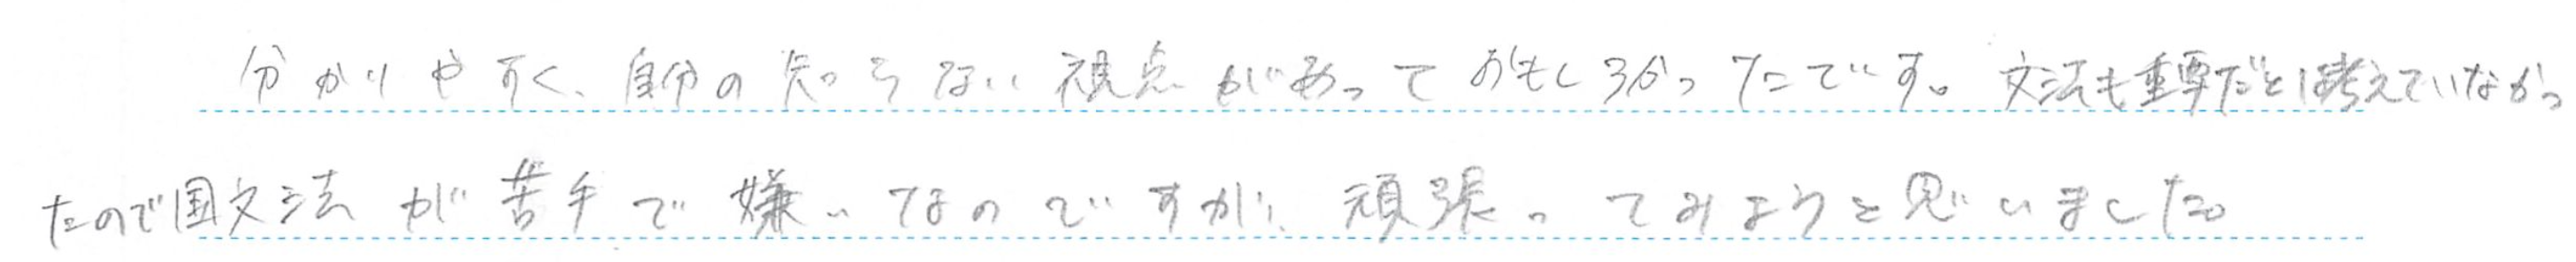 分かりやすく、自分の知らない視点があっておもしろかったです。文法も重要だとは考えていなかっ
たので国文法が苦手で嫌いなのですが、頑張ってみようと思いました。